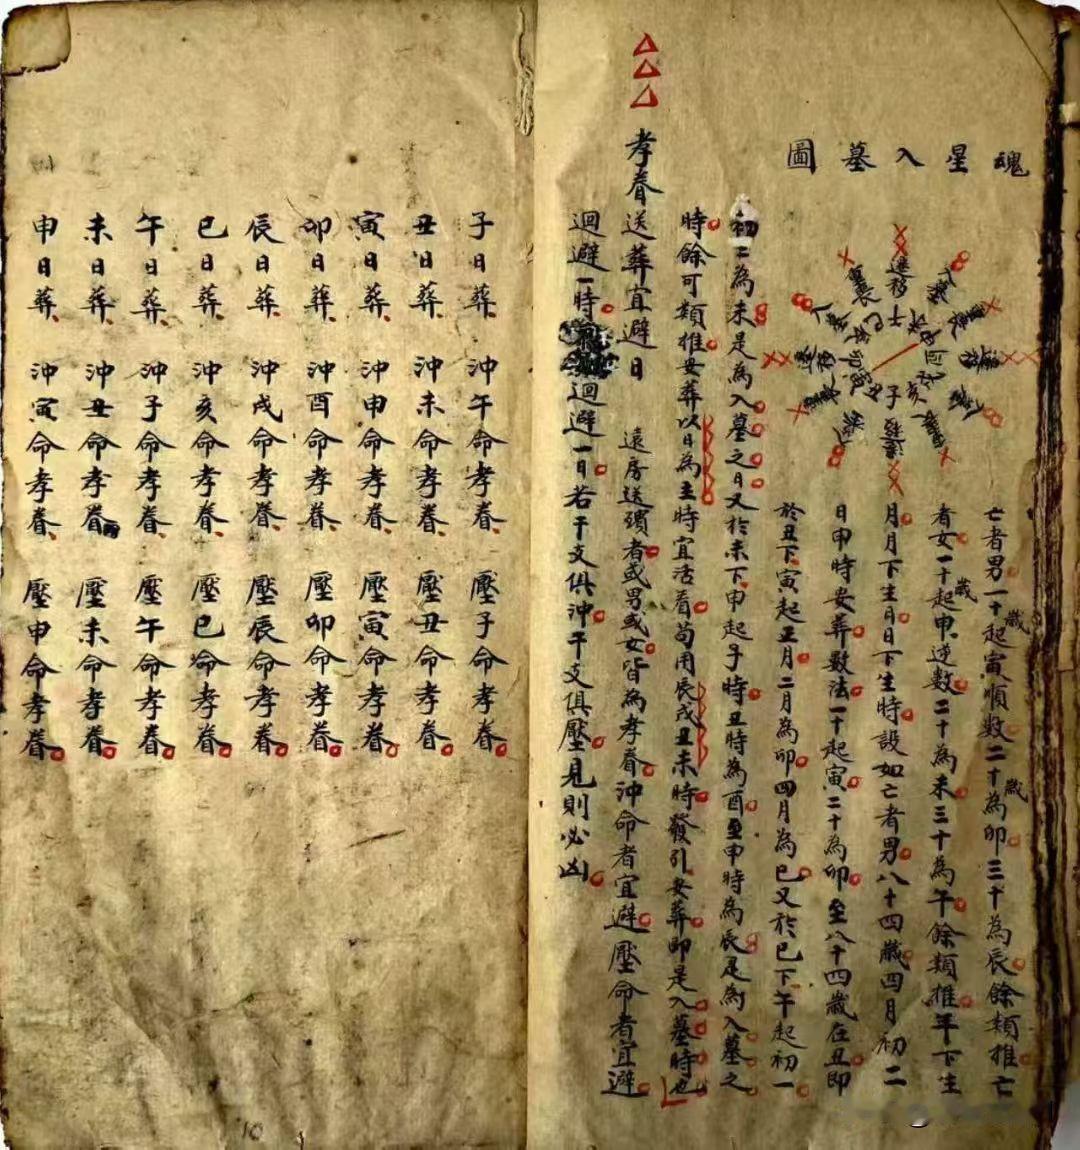 魂星入墓圖
亡者男一十歲起寅順數二十歲為卯三十為辰餘類推亡
者女一十歲起申逆數二十為未三十為午餘類推年下生
月月下生日日下生時設如亡者男八十四歲四月初二
日申時安葬數法一十起寅二十為卯至八十四歲在丑即
於丑下寅起正月二月為卯四月為巳又於巳下午起初一
初二為未是為入墓之日又於未下申起子時丑時為酉至申時為辰是為入墓之
時餘可類推安葬以日為主時宜活看苟用辰戌丑未時發引安葬即是入墓時也
孝眷送葬宜避日 遠房送殯者或男或女皆為孝眷沖命者宜避壓命者宜避
迴避一時迴避一日若干支俱沖干支俱壓見則必凶
子日葬 沖午命孝眷 壓子命孝眷
丑日葬 沖未命孝眷 壓丑命孝眷
寅日葬 沖申命孝眷 壓寅命孝眷
卯日葬 沖酉命孝眷 壓卯命孝眷
辰日葬 沖戌命孝眷 壓辰命孝眷
巳日葬 沖亥命孝眷 壓巳命孝眷
午日葬 沖子命孝眷 壓午命孝眷
未日葬 沖丑命孝眷 壓未命孝眷
申日葬 沖寅命孝眷 壓申命孝眷
10